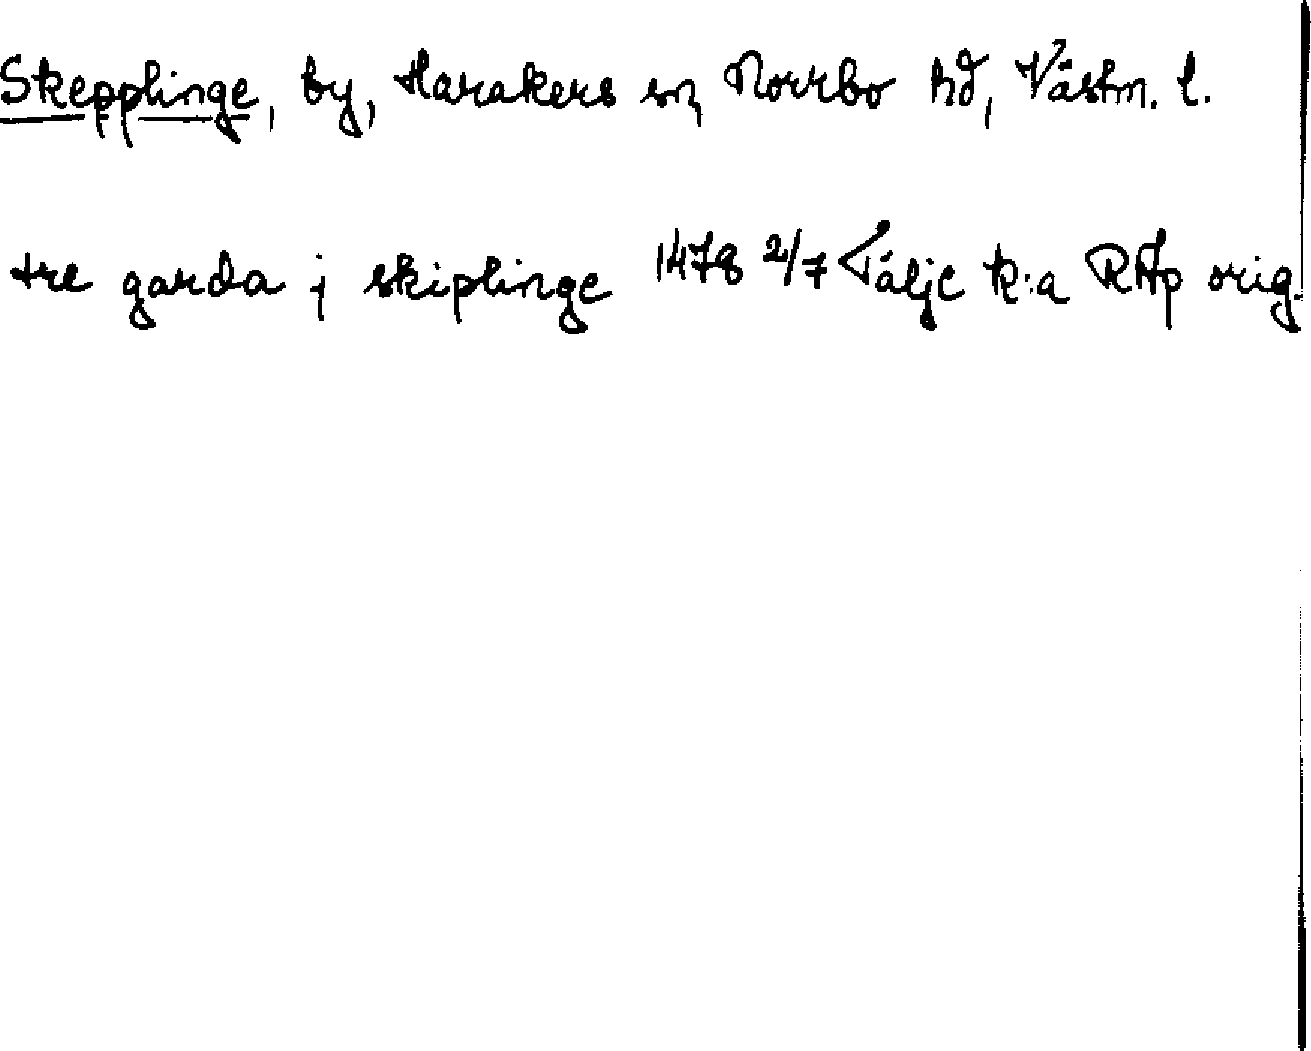 Skepplinge, by, Harakers sn, Norrbo hd, Västm. l.
tre garda j skiplinge 1478 2/7 Tälje k:a RAp orig.